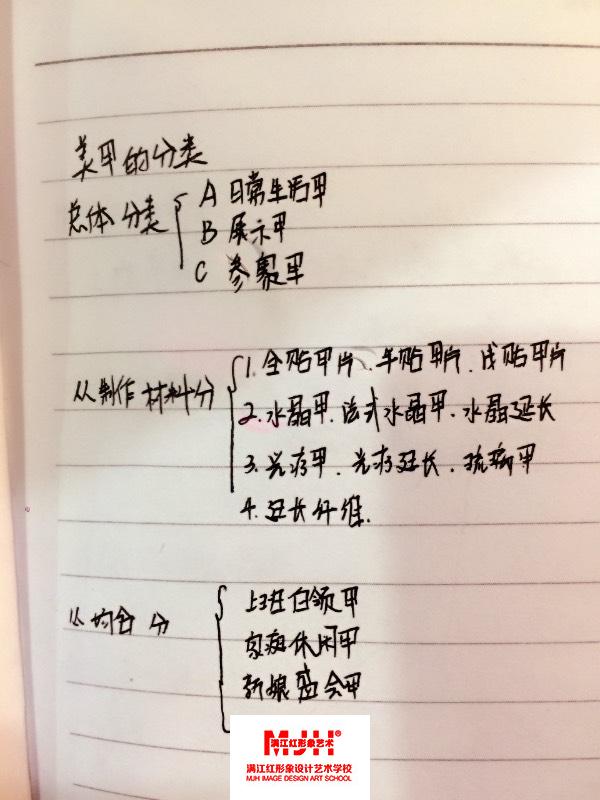 美甲的分类
总体分类
A 日常生活甲
B 展示甲
C 参赛甲
从制作材料分
1. 全贴甲片、半贴甲片、浅贴甲片
2. 水晶甲、法式水晶甲、水晶延长
3. 光疗甲、光疗延长、琉璃甲
4. 延长纤维.
从场合分
上班白领甲
家庭休闲甲
新娘宴会甲
MJH®
满江红形象艺术
满江红形象设计艺术学校
MJH IMAGE DESIGN ART SCHOOL